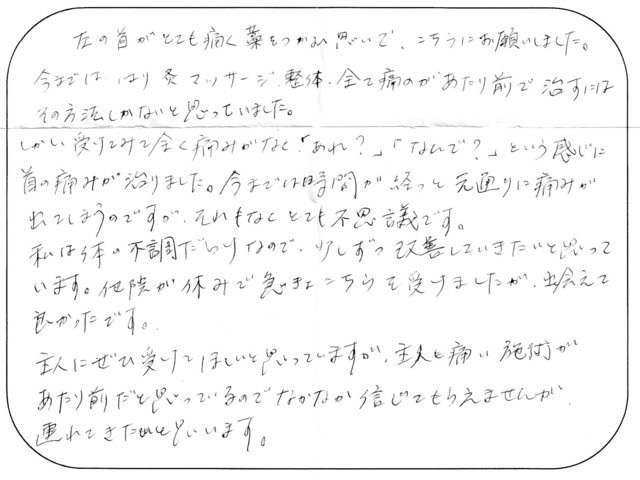 左の首がとても痛く藁をつかむ思いで、こちらにお願いしました。
今までは はり 灸 マッサージ、整体、全て痛のがあたり前で 治すには
その方法しかないと思っていました。
しかし 受けてみて全く痛みがなく「あれ？」「なんで？」という感じに
首の痛みが治りました。今までは時間が経つと 元通りに痛みが
出てしまうのですが、それもなくとても不思議です。
私は体の不調だらけなので、少しずつ改善していきたいと思って
います。他院が休みで急きょこちらを受けましたが、出会えて
良かったです。
主人にぜひ受けてほしいと思っていますが、主人も痛い施術が
あたり前だと思っているのでなかなか信じてもらえませんが、
連れてきたいと思います。